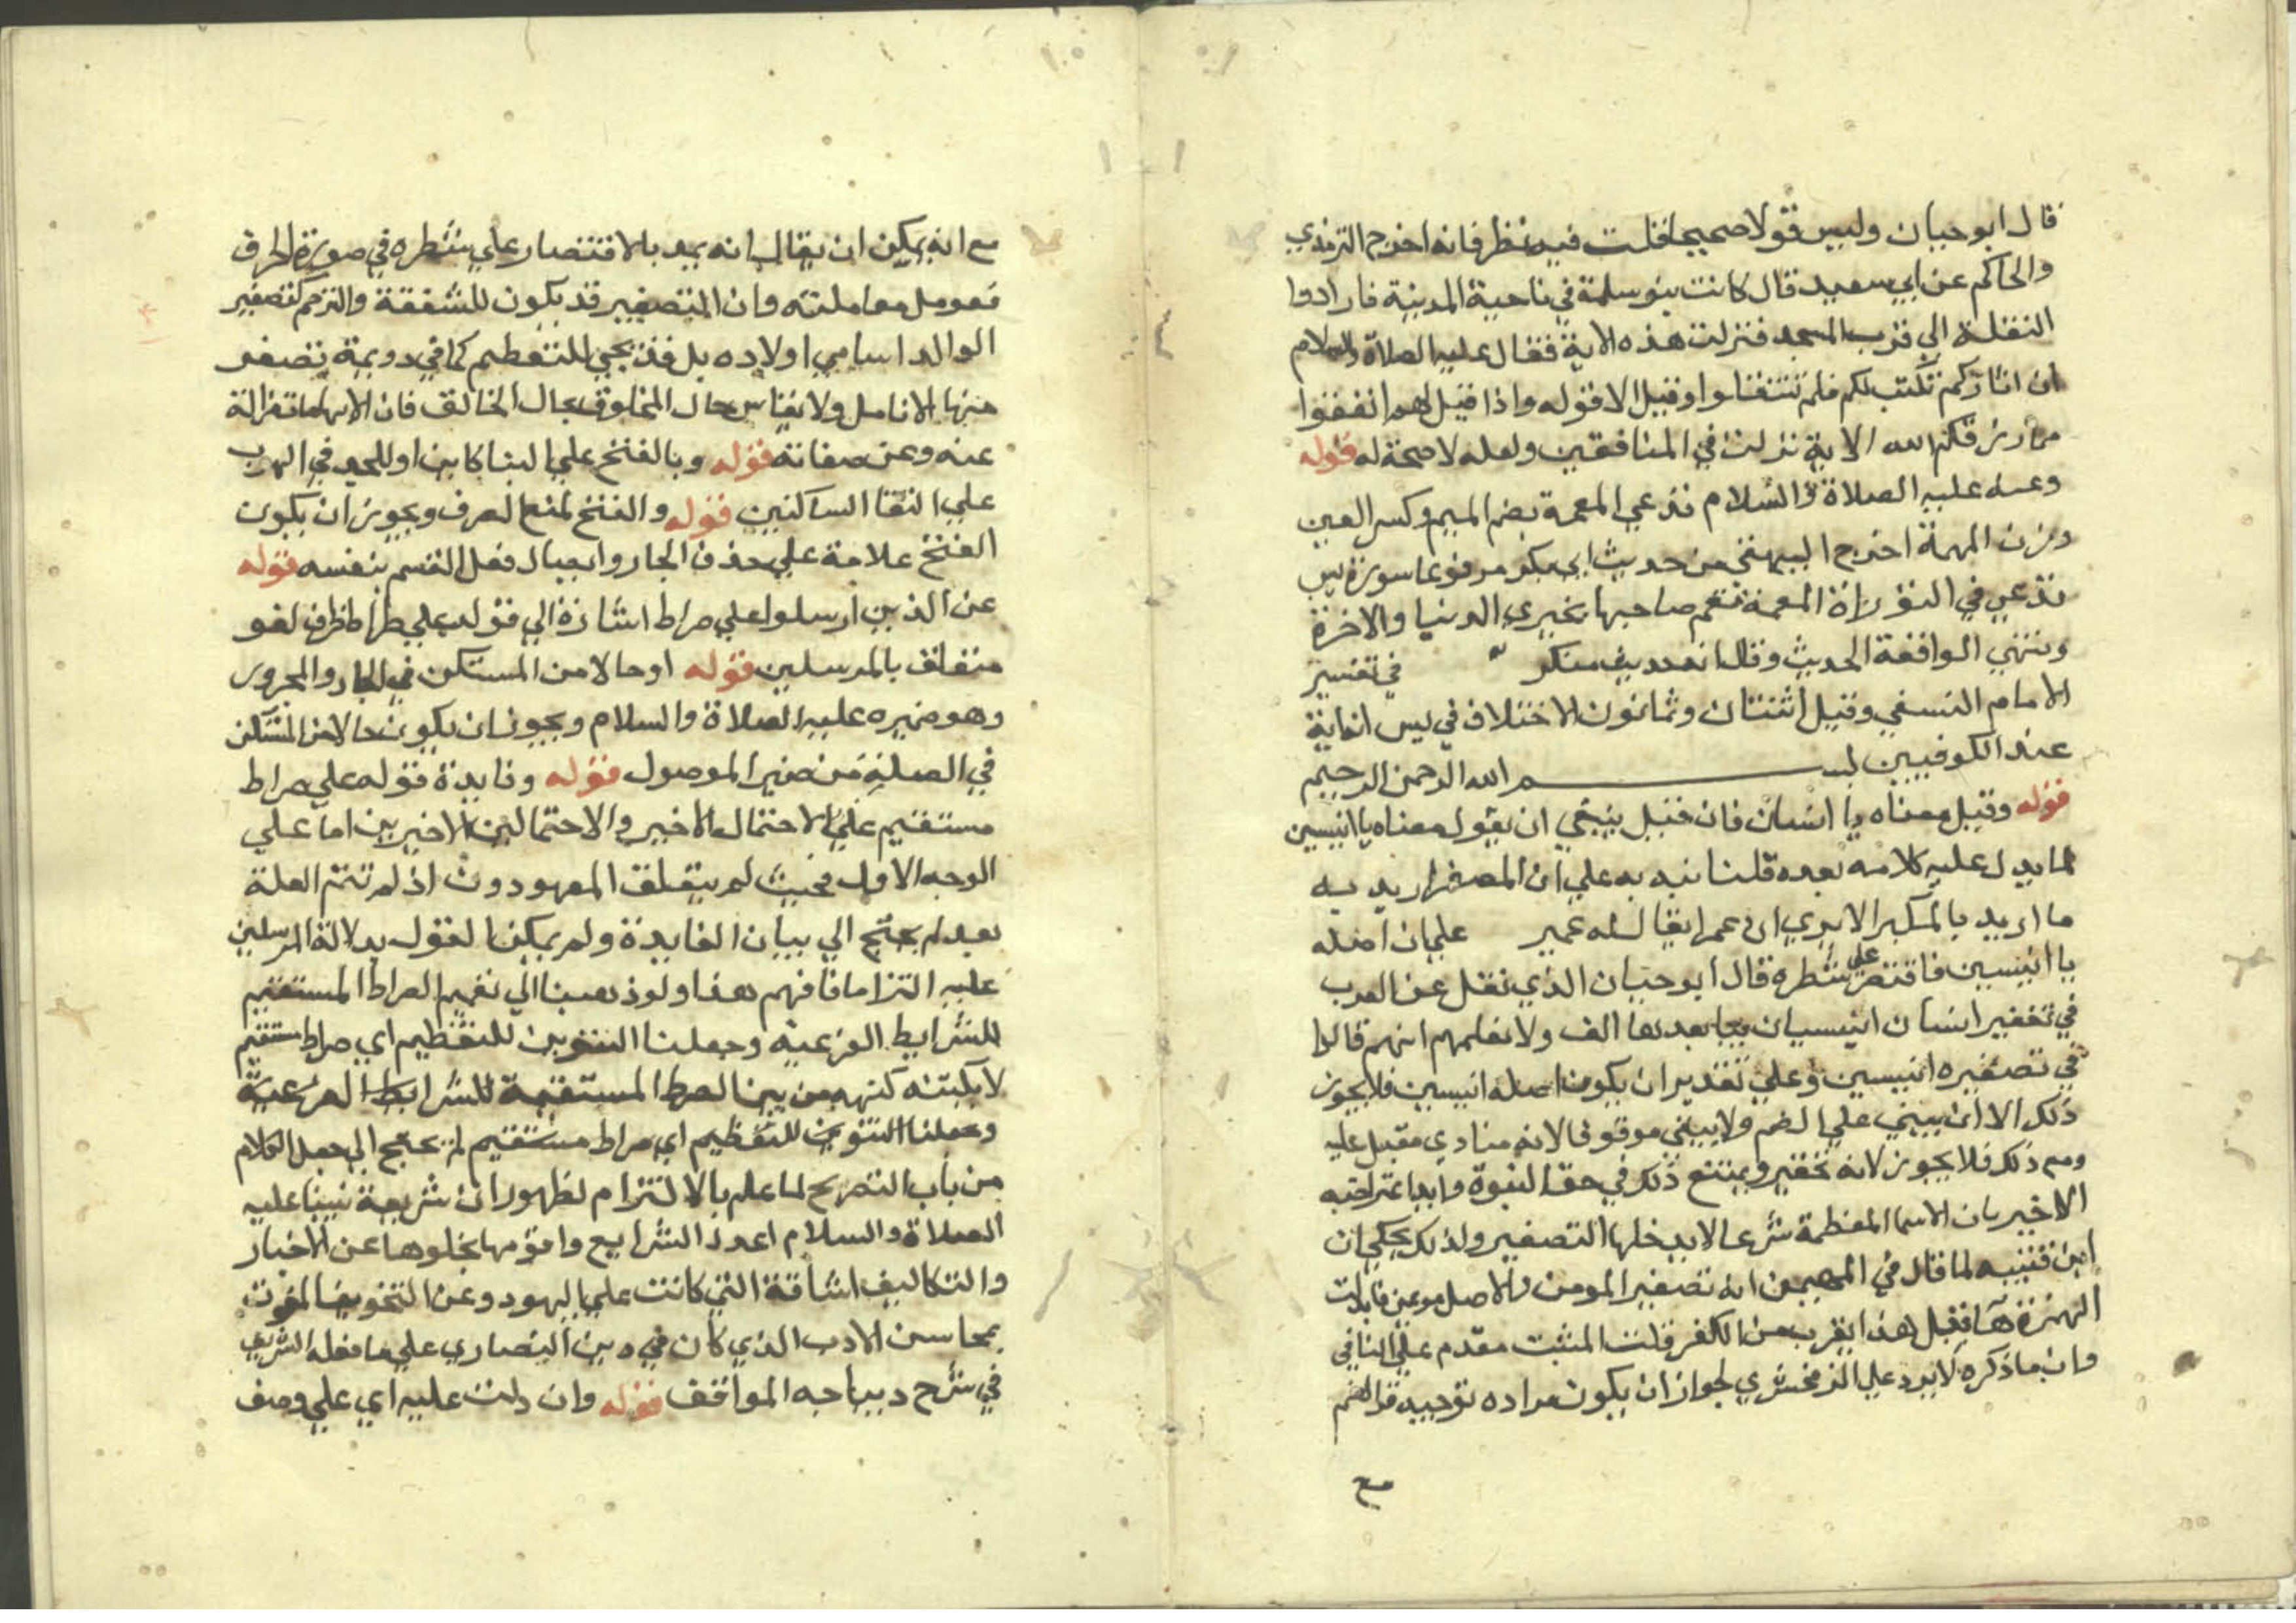 قال ابو حيان وليس قولا صحيحا قلت فيه نظر فانه اخرج الترمذي
والحاكم عن ابي سعيد قال كانت بنو سلمة في ناحية المدينة فارادوا
النقلة الي قرب المسجد فنزلت هذه الاية فقال عليه الصلاة والسلام
ان اثاركم تكتب لكم فلم تنتقلوا وقيل الا قوله واذا قيل لهم انفقوا
مما رزقكم الله الاية نزلت في المنافقين ولعله لا صحة له قوله
وعنه عليه الصلاة والسلام تدعي المعمة بضم الميم وكسر العين
وزن المهمة اخرج البيهقي من حديث ابي بكر مرفوعا سورة يس
تدعي في التوراة المعمة تعم صاحبها بخيري الدنيا والاخرة
وينتهي الواقفة الحديث وقال انه حديث منكر في تفسير
الامام النسفي وقيل اثنتان وثمانون الاختلاف في يس انها اية
عند الكوفيين بسم الله الرحمن الرحيم
قوله وقيل معناه يا انسان فان قيل ينبغي ان يقول معناه يا انيسين
لما يدل عليه كلامه بعده قلنا نبه به علي ان المصغر اريد به
ما اريد بالمكبر الا يري ان عمر ايقال له عمير علي ان اصله
يا انيسين فاقتصر علي شطره قال ابو حيان الذي نقل عن العرب
في تحقير انسان انيسيان بيا بعدها الف ولا نعلمهم انهم قالوا
في تصغيره انيسين وعلي تقدير ان يكون اصله انيسين فلا يجوز
ذلك الا ان يبني علي الضم ولا يبقي موقوفا لانه منادي مقبل عليه
ومع ذلك فلا يجوز لانه تحقير ويمتنع ذلك في حق النبوة وايد اعتراضه
الاخير بان الاسما المعظمة شرعا لا يدخلها التصغير ولذلك يحكي ان
ابن قتيبه لما قال في المهيمن انه تصغير المومن والاصل مويمن فابدلت
الهمزة هآ فقيل هذا يقرب من الكفر قلت المثبت مقدم علي النافي
وان ما ذكره لا يرد علي الزمخشري لجواز ان يكون مراده توجيه قراة الضم
مع
مع انه يمكن ان يقال انه بعد بالاقتصار علي شطره في صورة الحرف
فعومل معاملته وان التصغير قد يكون للشفقة والترحم كتصغير
الوالد اسامي اولاده بل قد يجي للتعظيم كما في دويهية تصفر
منها الانامل ولا يقاس حال المخلوق بحال الخالق فان الايهامات زالة
عنه وعن صفاته قوله وبالفتح علي البنا كاين او للجد في الهرب
علي التقا الساكنين قوله والفتح لمنع الصرف ويجوز ان يكون
الفتح علامة علي حذف الجار وايصال فعل القسم بنفسه قوله
عن الذين ارسلوا علي صراط اشارة الي قوله علي صراط ظرف لغو
متعلق بالمرسلين قوله او حالا من المستكن في الجار والمجرور
وهو ضميره عليه الصلاة والسلام ويجوز ان يكون حالا من المستكن
في الصلة من ضمير الموصول قوله وفايدة قوله علي صراط
مستقيم علي الاحتمال الاخير والاحتمالين الاخيرين اما علي
الوجه الاول فحيث لم يتعلق المعهود دون اذ لم تتم العلة
بعد لم يحتج الي بيان الفايدة ولم يمكن القول بدلالة المرسلين
عليه التزاما فافهم هذا ولو ذهبنا الي تعميم الصراط المستقيم
للشرايط الفرعيه وجعلنا التنوين للتعظيم اي صراط مستقيم
لا يكتنه كنهه من بين الصرط المستقيمة للشرايط الفرعية
وجعلنا التنوين للتعظيم اي صراط مستقيم لم يحتج الي جعل الكلام
من باب التصريح لما علم بالالتزام لظهور ان شريعة نبينا عليه
الصلاة والسلام اعدل الشرايع واقومها بخلوها عن الاخبار
والتكاليف الشاقة التي كانت علي اليهود وعن التخويف المفوت
بمحاسن الادب الذي كان في دين النصاري علي ما فعله الشريف
في شرح ديباجه المواقف قوله وان دلت عليه اي علي وصف